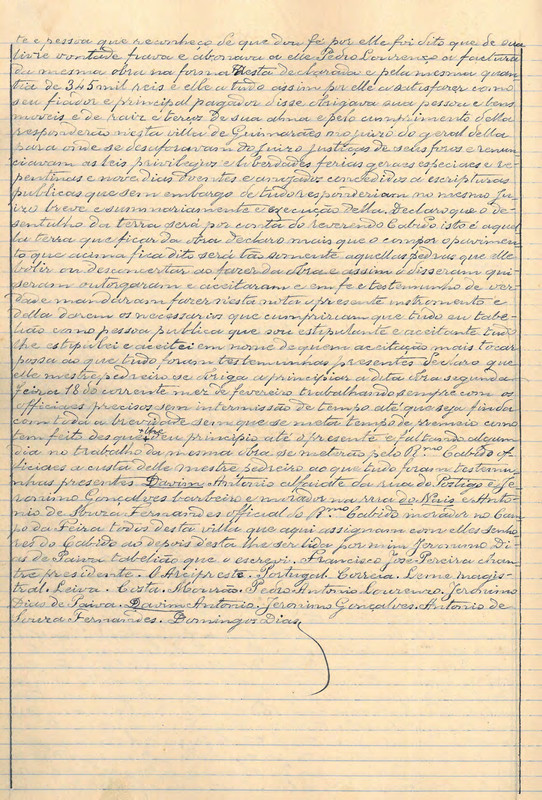 te e pessoa que reconheço de que dou fé por elle foi dito que de sua
livre vontade fiava e abonava a elle Pedro Lourenço a factura
da mesma obra na forma nesta declarada e pela mesma quan
tia de 345 mil reis e elle a tudo assim por elle a satisfazer como
seu fiador e principal pagador disse obrigava sua pessoa e bens
moveis e de raiz e terços de sua alma e pelo cumprimento della
responderão nesta villa de Guimarães no juizo do geral della
para onde se desaforavam do juizo justiças de seus foros e renun
ciavam as leis privilegios e liberdades ferias geraes especiaes e re
pentinas e nove dias doentes e anojados concedidos a escripturas
publicas que sem embargo de tudo responderiam no mesmo ju
izo breve e summariamente e execução della. Declaro que o de
sentulho da terra será por conta do Reverendo Cabido isto é aquel
la terra que ficar da obra Declaro mais que o compor o pavimen
to que acima fica dito será tão somente aquellas pedras que elle
bolir ou desconcertar ao fazer da obra e assim o disseram qui
seram outorgaram e acceitaram e em fé e testemunho de ver
dade mandaram fazer nesta nota o presente instrumento e
della darem os necessarios que cumpririam que tudo eu tabe
lião como pessoa publica que sou estipulante e aceitante tudo
lhe estipulei e aceitei em nome de quem aceitação mais tocar
possa ao que tudo foram testemunhas presentes Declaro que
elle mestre pedreiro se obriga a principiar a dita obra segunda
feira 18 do corrente mez de fevereiro trabalhando sempre com os
officiaes precisos sem intermissão de tempo até que seja finda
com toda a brevidade sem que se meta tempo de premeio como
tem feito desque lhe deu principio até o presente e faltando algum
dia no trabalho da mesma obra se meterão pelo Rmo Cabido of
ficiaes a custa delle mestre pedreiro ao que tudo foram testemu
nhas presentes Davim Antonio alfaiate da rua do Postigo e Je
ronimo Gonçalves barbeiro e morador na rua do Nuis e Anto
nio de Souza Fernandes official do Rmo Cabido morador no Cam
po da Feira todos desta villa que aqui assignam com elles Senho
res do Cabido ao depois desta lhe ser lida por mim Jeronimo Di
as de Paiva tabelião que o escrevi. Francisco José Pereira chan
tre presidente. O Arcipreste. Portugal. Correia. Leme magis
tral. Leiva. Costa. Mourão. Pedro Antonio Lourenço. Jeronimo
Dias de Paiva. Davim Antonio. Jeronimo Gonçalves. Antonio de
Souza Fernandes. Domingos Dias